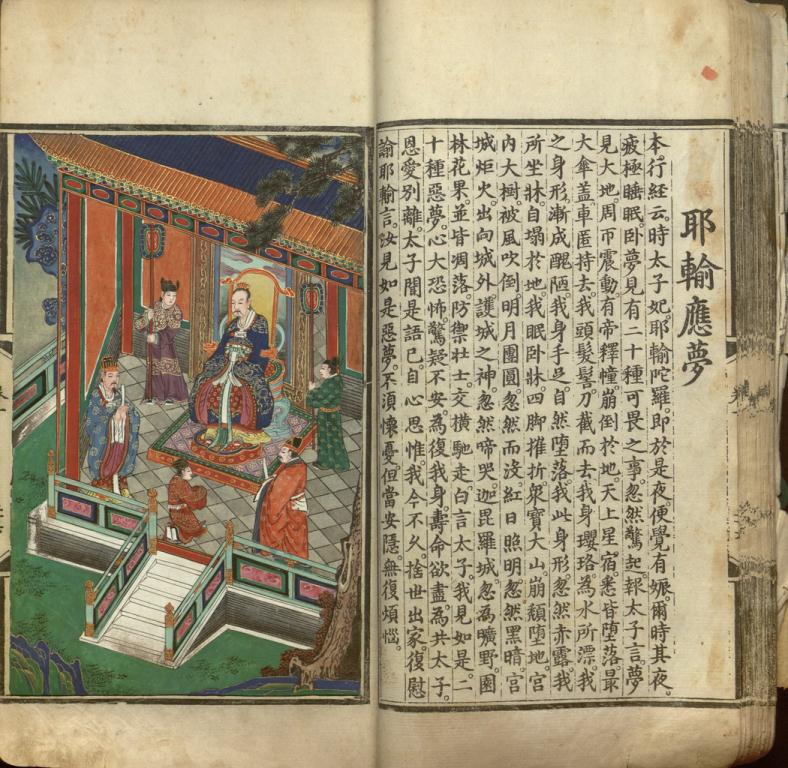 耶輸應夢
本行經云。時太子妃。耶輸陀羅。即於是夜。便覺有娠。爾時其夜。
疲極睡眠。卧夢見有二十種可畏之事。忽然驚起。報太子言。夢
見大地。周帀震動。有帝釋幢。崩倒於地。天上星宿。悉皆墮落。最
大傘盖。車匿持去。我頭髮髻。刀截而去。我身瓔珞。為水所漂。我
之身形。漸成醜陋。我身手足。自然墮落。我此身形。忽然赤露。我
所坐牀。自塌於地。我眠卧牀。四脚摧折。衆寶大山。崩頹墮地。宮
内大樹。被風吹倒。明月團圓。忽然而没。紅日照明。忽然黑暗。宮
城炬火。出向城外。護城之神。忽然啼哭。迦毘羅城。忽為曠野。園
林花果。並皆凋落。防禦壯士。交横馳走。白言太子。我見如是。二
十種惡夢。心大恐怖。驚疑不安。為復我身。壽命欲盡。為共太子。
恩愛别離。太子聞是語已。自心思惟。我今不久。捨世出家。復慰
諭耶輸言。汝見如是惡夢。不須懷憂。但當安隱。無復煩惱。